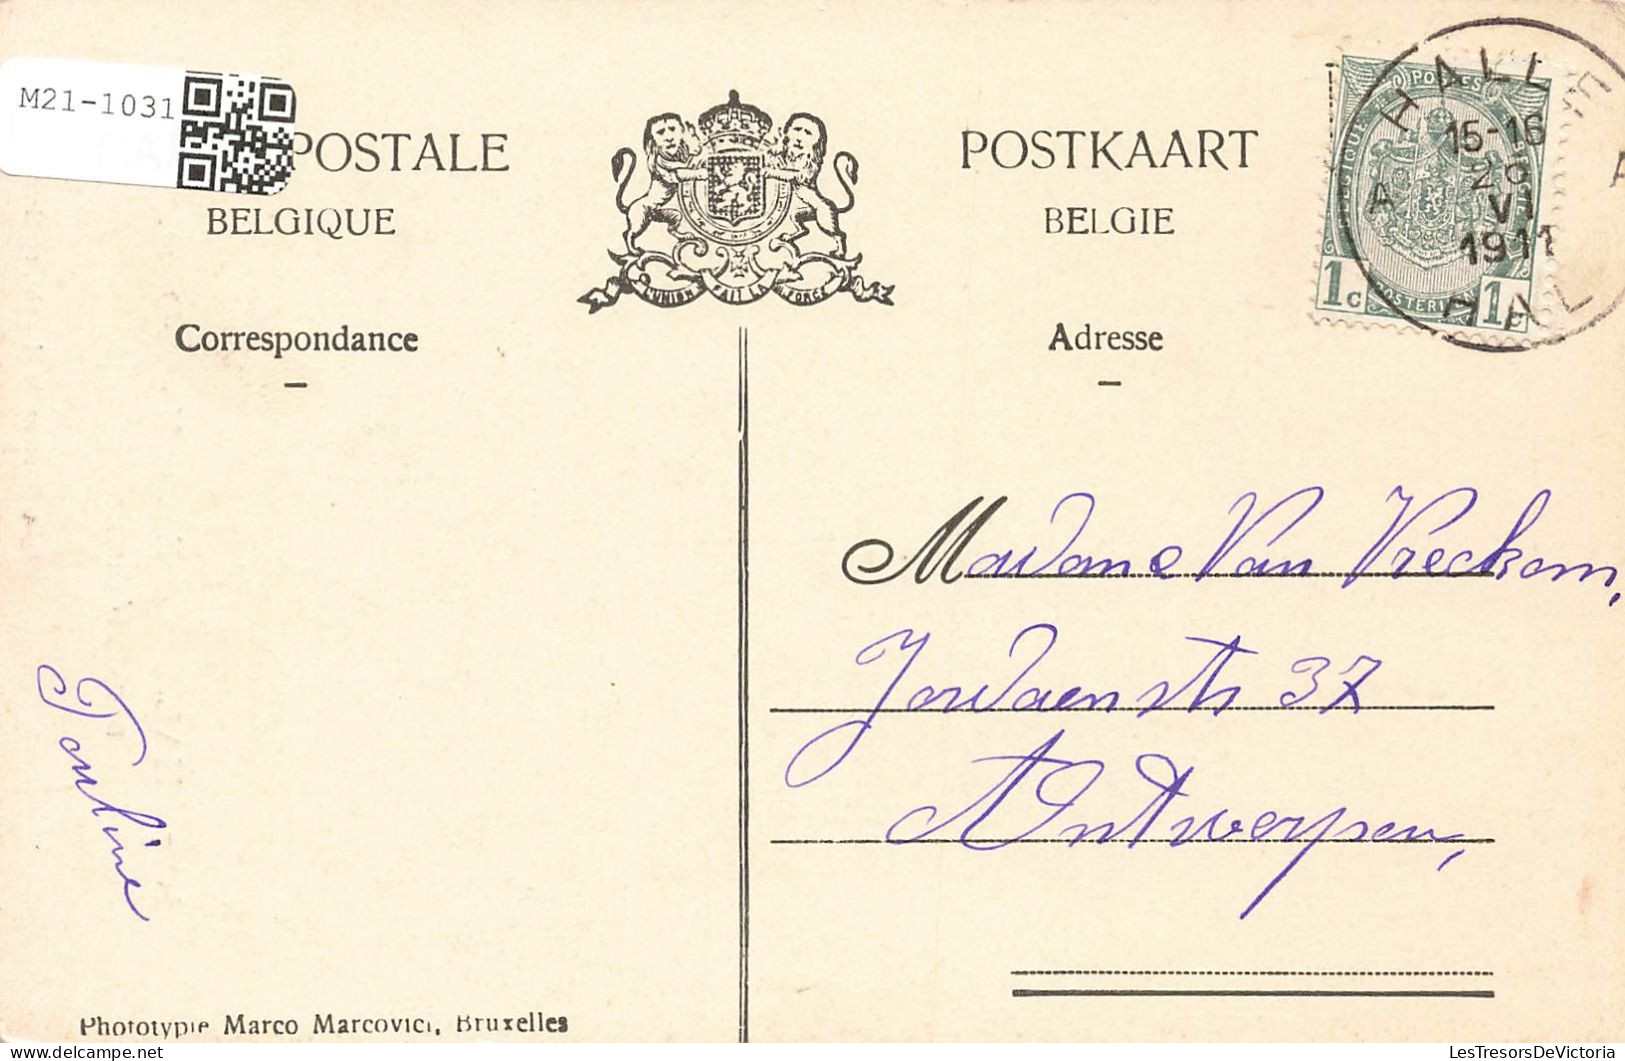 M21-1031
POSTALE
BELGIQUE
Correspondance
L'UNION FAIT LA FORCE
POSTKAART
BELGIE
Adresse
POSTES
BELGIQUE
POSTERIJEN
1c 1c
HALLE
15-16
26
VI
1911
A A
HAL
Madame Van Vreckom,
Jordaenstr 37
Antwerpen,
Pauline
Phototypie Marco Marcovici, Bruxelles
LesTresorsDeVictoria